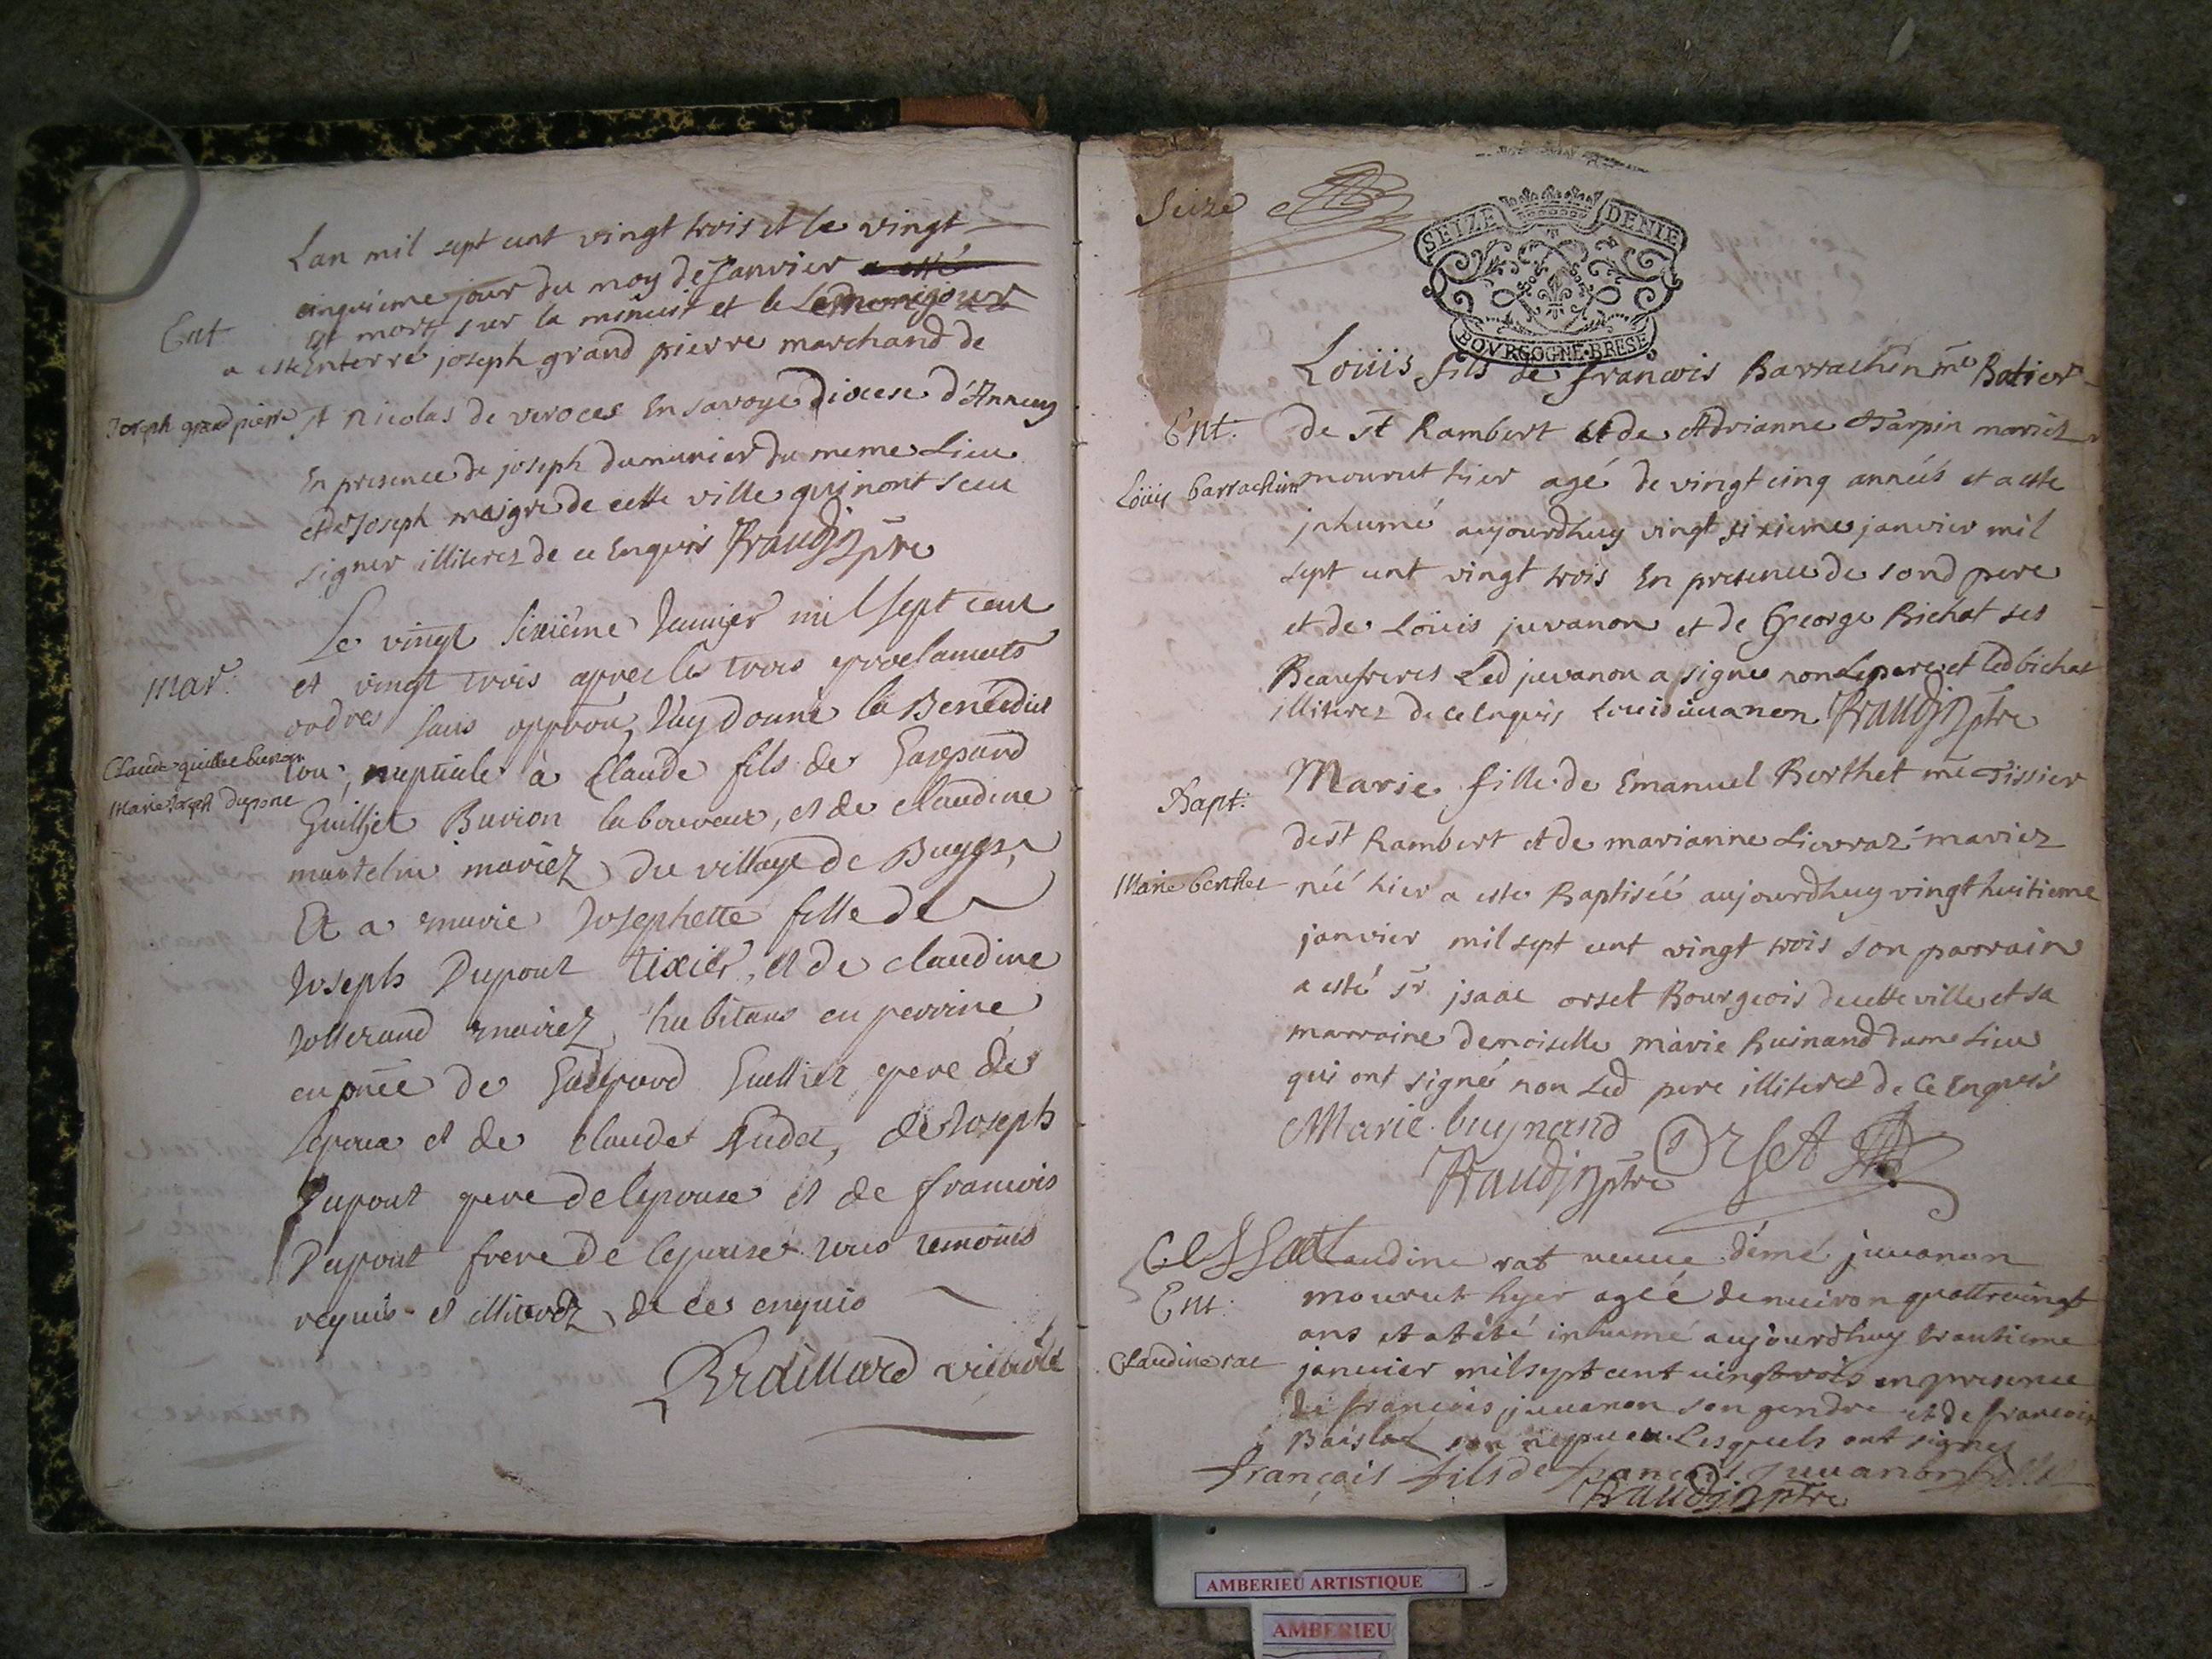 Lan mil sept cent vingt trois et le vingt
cinquieme jour du moy de Janvier
Ent
est mort sur la minuit et le
a este Enterré joseph grand pierre marchand de
Joseph grand pierre
st Nicolas de veroces En savoye Diocese d'Annecy
En presence de joseph dumunier du meme Lieu
et de Joseph maigre de cette ville qui nont sceu
signer illiterez de ce Enquis ptre
Le vingt sixiéme Janvier mil sept cent
Mar.
et vingt trois aprez les trois proclamats
ordres sans oppoõn, J'ay donné la Benedict
Claude guillet burion
ion, nuptiale à Claude fils de Gaspard
Marie Joseph dupont
Guilliet Burion laboureur, et de claudine
martelin mariez du village de Buges,
Et a marie Josephette fille de
Joseph Dupont tixier, et de claudine
Jotterand mariez, habitans en perrine
en pnce de Gaspard Guilliet pere de
lepoux et de claude, de Joseph
Dupont pere de lepouse et de francois
Dupont frere de lepouse tous temoins
requis et illiterez de ces enquis
Braillard vicaire
Seize
SEIZE DENIE
BOVRGOGNE·BRESE
Loüis fils de francois Barrachin me Batier
Ent.
de st Rambert et de Adrianne Tarpin mariez
Loüis barrachin
mourut hier agé de vingt cinq annéés et a este
jnhumé aujourdhuy vingt sixieme janvier mil
sept cent vingt trois En presence de sond pere
et de Loüis juvanon et de George Bichat ses
Beaufreres Led juvanon a signé non Le pere et led bichat
illiterez de ce Enquis Louis iuuanon ptre
Marie fille de Emanuel Berthet me Tissier
Bapt.
de st Rambert et de marianne Lievraz mariez
Marie berthet
néé hier a este Baptiséé aujourdhuy vingt huitieme
janvier mil sept cent vingt trois son parrain
a esté sr jsaac orset Bourgeois de cette ville et sa
marraine demoiselle marie Buinand dume Lieu
qui ont signé non Led pere illiteré de Ce Enquis
Marie buynand Orset
ptre
Claudine rat veuve d'émé juuanon
Ent.
mourut hyer agéé denuiron quattreuingt
ans et at été inhumé aujourdhuy trantieme
Claudine rat
januier mil sept cent uingt trois en presence
de francois juuanon son gendre et de francois
son nepueu Lesquels ont signez
français fils de français Juuanon
ptre
AMBERIEU ARTISTIQUE
AMBERIEU